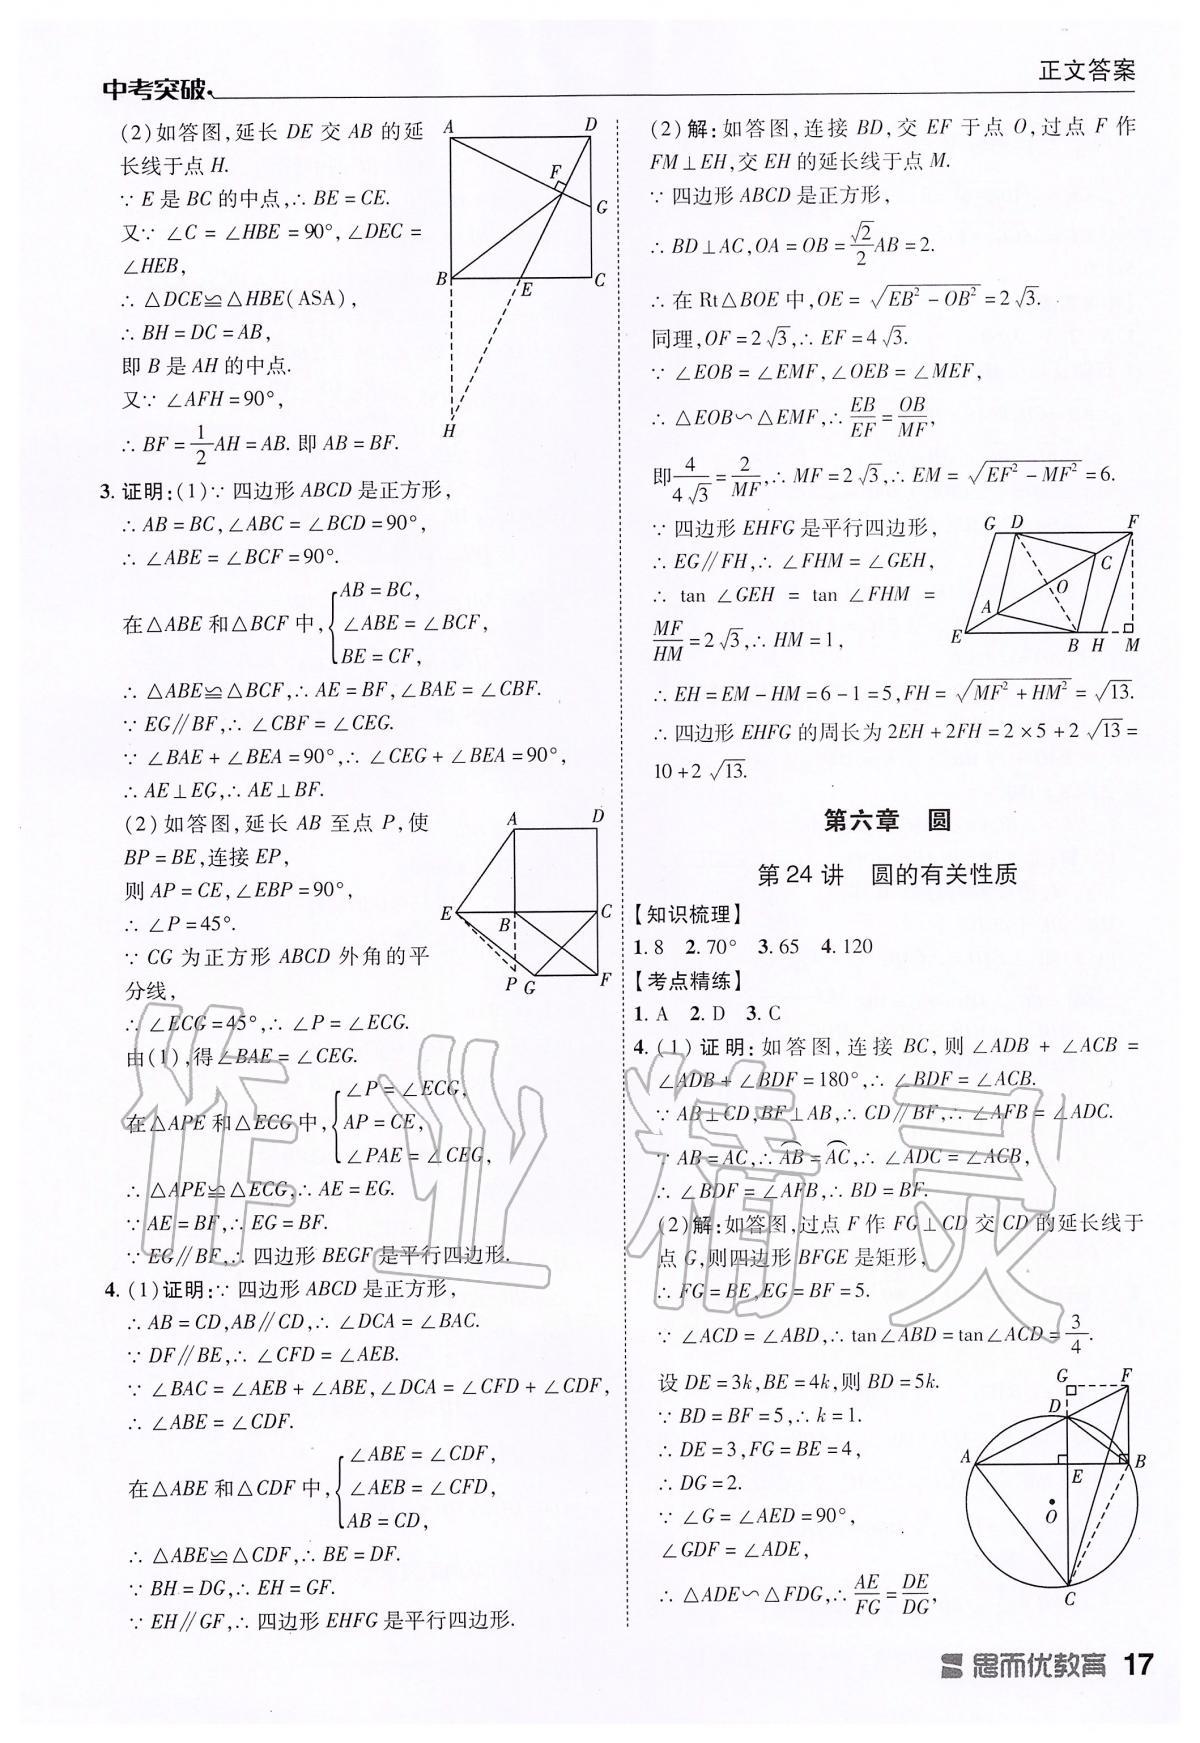 中考突破
正文答案
(2)如答图,延长 DE 交 AB 的延
长线于点 H.
∵ E 是 BC 的中点,∴ BE = CE.
又∵ ∠C = ∠HBE = 90°, ∠DEC =
∠HEB,
∴ △DCE≌△HBE(ASA),
∴ BH = DC = AB,
即 B 是 AH 的中点.
又∵ ∠AFH = 90°,
∴ BF = 1/2 AH = AB. 即 AB = BF.
A D F G B E C H
3. 证明:(1)∵ 四边形 ABCD 是正方形,
∴ AB = BC, ∠ABC = ∠BCD = 90°,
∴ ∠ABE = ∠BCF = 90°.
在△ABE 和△BCF 中, { AB = BC,
∠ABE = ∠BCF,
BE = CF,
∴ △ABE≌△BCF,∴ AE = BF, ∠BAE = ∠CBF.
∵ EG∥BF,∴ ∠CBF = ∠CEG.
∵ ∠BAE + ∠BEA = 90°,∴ ∠CEG + ∠BEA = 90°,
∴ AE⊥EG,∴ AE⊥BF.
(2) 如答图,延长 AB 至点 P, 使
BP = BE,连接 EP,
则 AP = CE, ∠EBP = 90°,
∴ ∠P = 45°.
∵ CG 为正方形 ABCD 外角的平
分线,
∴ ∠ECG = 45°,∴ ∠P = ∠ECG.
由(1),得∠BAE = ∠CEG.
在△APE 和△ECG 中, { ∠P = ∠ECG,
AP = CE,
∠PAE = ∠CEG,
∴ △APE≌△ECG,∴ AE = EG.
∵ AE = BF,∴ EG = BF.
∵ EG∥BF,∴ 四边形 BEGF 是平行四边形.
A D E B C P G F
4. (1)证明:∵ 四边形 ABCD 是正方形,
∴ AB = CD,AB∥CD,∴ ∠DCA = ∠BAC.
∵ DF∥BE,∴ ∠CFD = ∠AEB.
∵ ∠BAC = ∠AEB + ∠ABE, ∠DCA = ∠CFD + ∠CDF,
∴ ∠ABE = ∠CDF.
在△ABE 和△CDF 中, { ∠ABE = ∠CDF,
∠AEB = ∠CFD,
AB = CD,
∴ △ABE≌△CDF,∴ BE = DF.
∵ BH = DG,∴ EH = GF.
∵ EH∥GF,∴ 四边形 EHFG 是平行四边形.
(2)解:如答图,连接 BD,交 EF 于点 O,过点 F 作
FM⊥EH,交 EH 的延长线于点 M.
∵ 四边形 ABCD 是正方形,
∴ BD⊥AC,OA = OB = √2/2 AB = 2.
∴ 在 Rt△BOE 中,OE = √(EB² - OB²) = 2√3.
同理,OF = 2√3,∴ EF = 4√3.
∵ ∠EOB = ∠EMF, ∠OEB = ∠MEF,
∴ △EOB∽△EMF,∴ EB/EF = OB/MF,
即 4/4√3 = 2/MF,∴ MF = 2√3,∴ EM = √(EF² - MF²) = 6.
∵ 四边形 EHFG 是平行四边形,
∴ EG∥FH,∴ ∠FHM = ∠GEH,
∴ tan ∠GEH = tan ∠FHM =
MF/HM = 2√3,∴ HM = 1,
G D F C O A E B H M
∴ EH = EM - HM = 6 - 1 = 5,FH = √(MF² + HM²) = √13.
∴ 四边形 EHFG 的周长为 2EH + 2FH = 2 × 5 + 2√13 =
10 + 2√13.
第六章 圆
第 24 讲 圆的有关性质
【知识梳理】
1. 8 2. 70° 3. 65 4. 120
【考点精练】
1. A 2. D 3. C
4. (1) 证明: 如答图, 连接 BC, 则 ∠ADB + ∠ACB =
∠ADB + ∠BDF = 180°,∴ ∠BDF = ∠ACB.
∵ AB⊥CD,BF⊥AB,∴ CD∥BF,∴ ∠AFB = ∠ADC.
∵ AB = AC,∴ A͡B = A͡C,∴ ∠ADC = ∠ACB,
∴ ∠BDF = ∠AFB,∴ BD = BF.
(2)解:如答图,过点 F 作 FG⊥CD 交 CD 的延长线于
点 G,则四边形 BFGE 是矩形,
∴ FG = BE,EG = BF = 5.
∵ ∠ACD = ∠ABD,∴ tan∠ABD = tan∠ACD = 3/4.
设 DE = 3k,BE = 4k,则 BD = 5k.
∵ BD = BF = 5,∴ k = 1.
∴ DE = 3,FG = BE = 4,
∴ DG = 2.
∵ ∠G = ∠AED = 90°,
∠GDF = ∠ADE,
∴ △ADE∽△FDG,∴ AE/FG = DE/DG,
G F D A E B O C
作业精灵
思而优教育 17